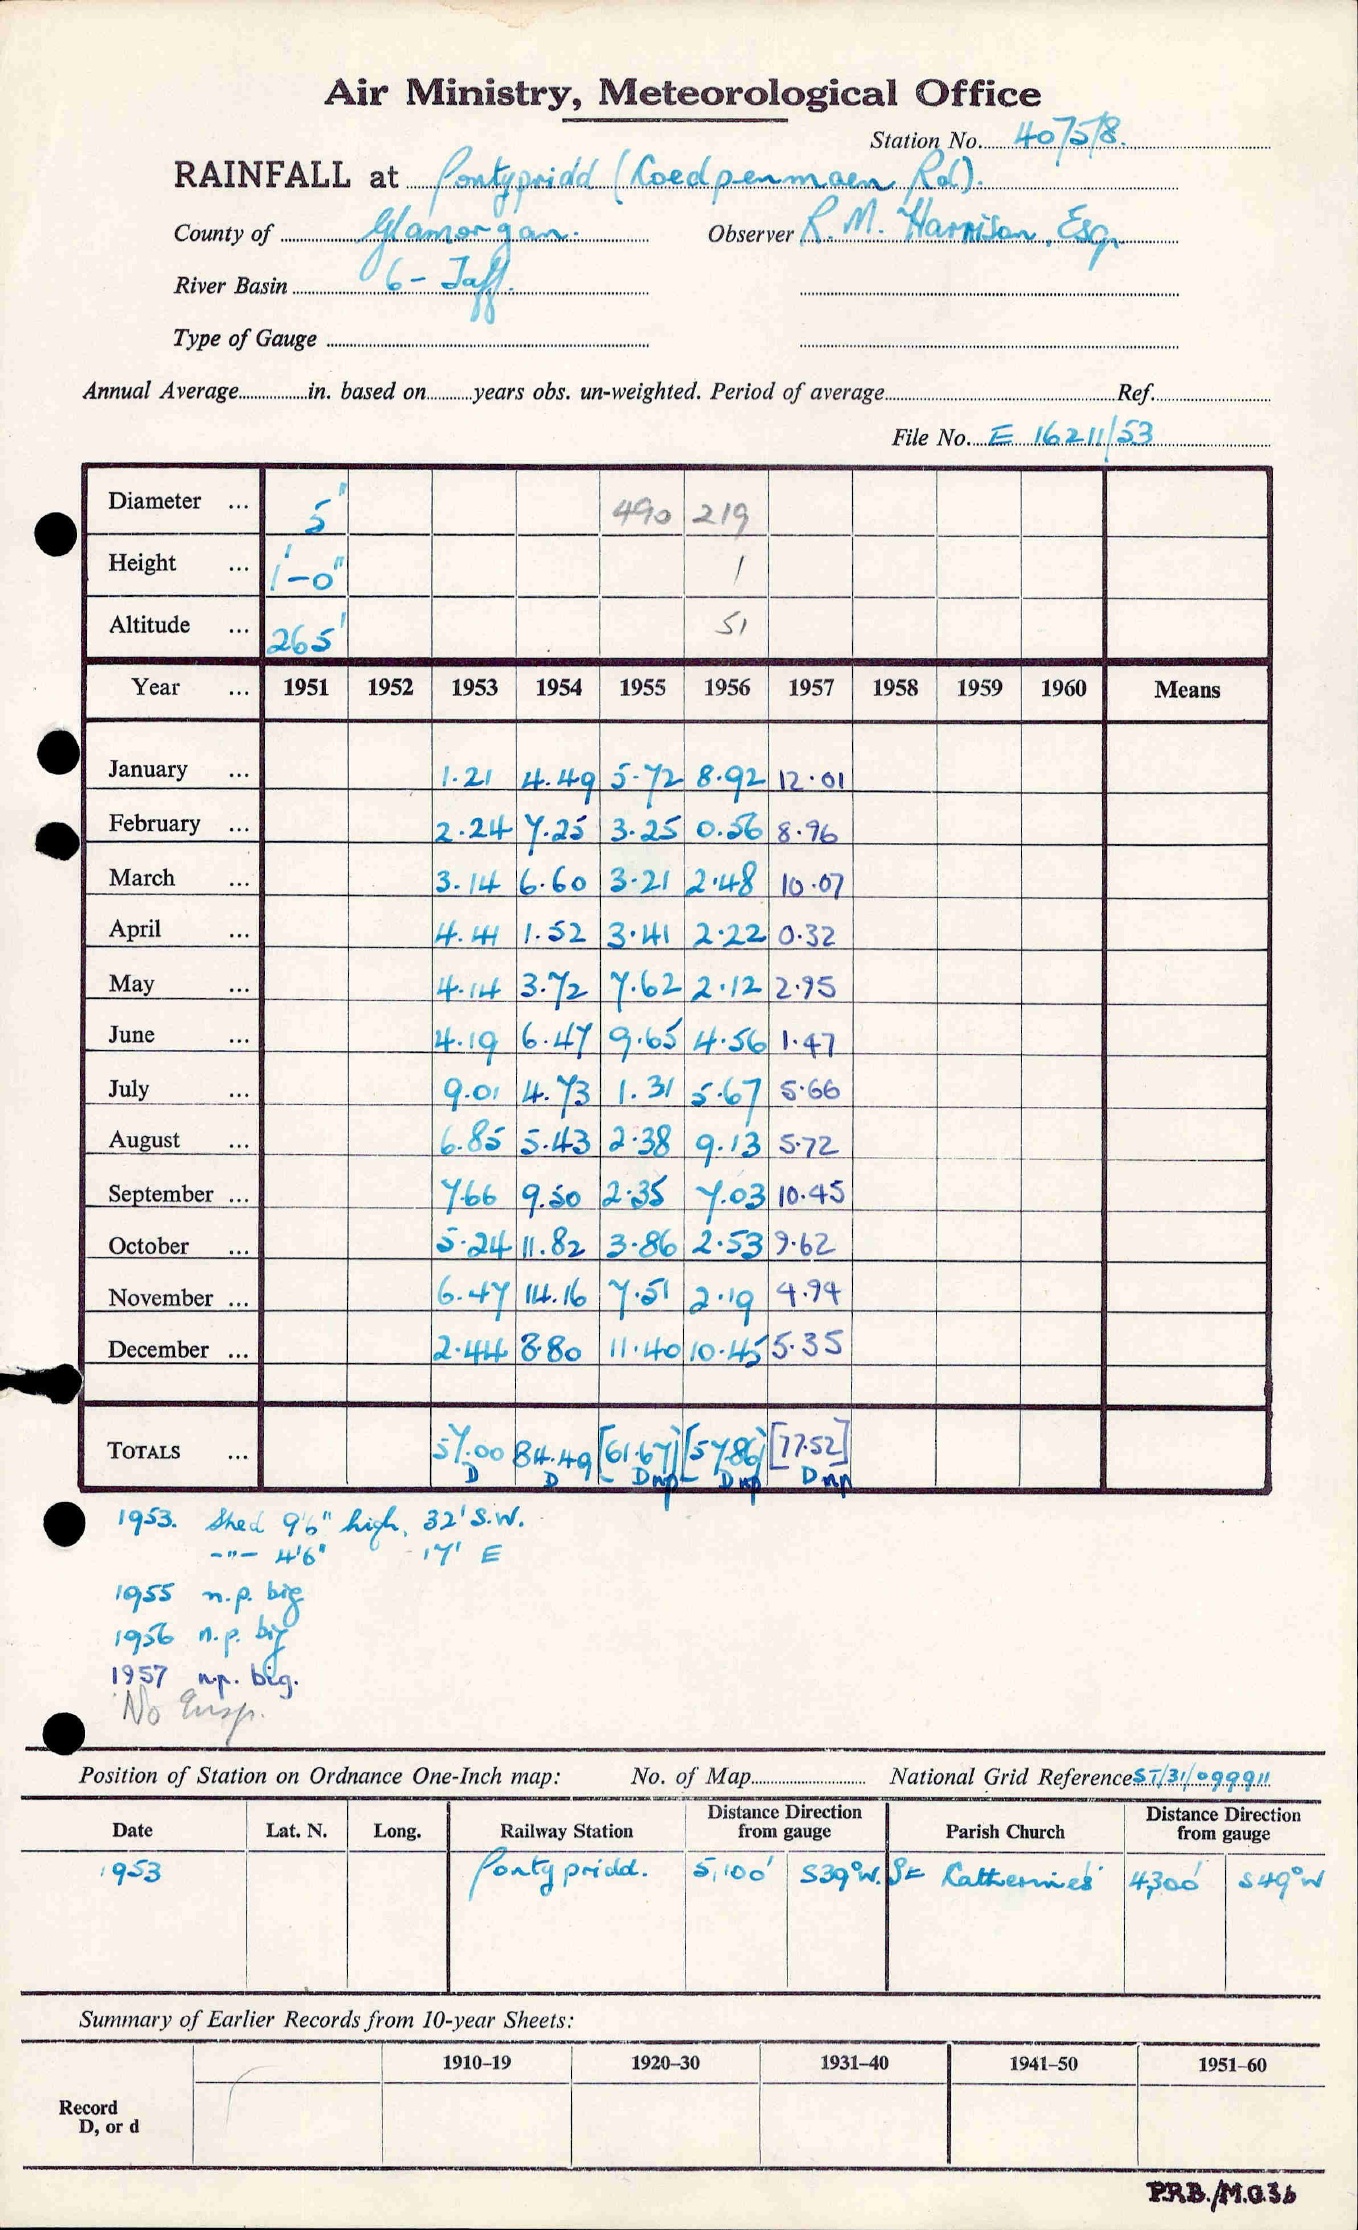 Air Ministry, Meteorological Office
Station No. 407578.
RAINFALL at Pontypridd (Coedpenmaen Rd).
County of Glamorgan. Observer R. M. Harrison, Esq.
River Basin 6 - Taff.
Type of Gauge
Annual Average in. based on years obs. un-weighted. Period of average Ref.
File No. E 16211/53
Diameter ... 5" 490 219
Height ... 1'-0" 1
Altitude ... 265' 51
Year ... 1951 1952 1953 1954 1955 1956 1957 1958 1959 1960 Means
January ... 1.21 4.49 5.72 8.92 12.01
February ... 2.24 7.25 3.25 0.56 8.96
March ... 3.14 6.60 3.21 2.48 10.07
April ... 4.41 1.52 3.41 2.22 0.32
May ... 4.14 3.72 7.62 2.12 2.95
June ... 4.19 6.47 9.65 4.56 1.47
July ... 9.01 4.73 1.31 5.67 5.66
August ... 6.85 5.43 2.38 9.13 5.72
September ... 7.66 9.50 2.35 7.03 10.45
October ... 5.24 11.82 3.86 2.53 9.62
November ... 6.47 14.16 7.51 2.19 4.94
December ... 2.44 8.80 11.40 10.45 5.35
TOTALS ... 57.00 84.49 [61.67] [57.86] [77.52]
D D D np D np D np
1953. Shed 9'6" high, 32' S.W.
-"- 4'6" 17' E
1955 n.p. big
1956 n.p. big
1957 n.p. big.
No Insp.
Position of Station on Ordnance One-Inch map: No. of Map National Grid Reference ST/31/099911
Date Lat. N. Long. Railway Station Distance Direction from gauge Parish Church Distance Direction from gauge
1953 Pontypridd. 5,100' S39°W. St Catherine's 4,300' S49°W
Summary of Earlier Records from 10-year Sheets:
1910–19 1920–30 1931–40 1941–50 1951–60
Record
D, or d
P.R.B./M.O.36